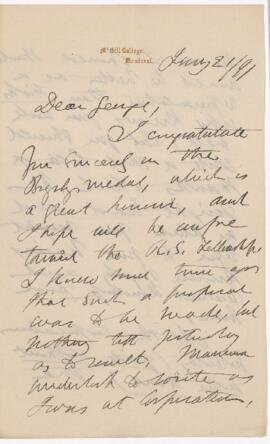 McGill College,
Montreal.
Dear George,
I congratulate
you sincerely on the
Bigsby medal, which is
a great honour, and
I hope will be
the R.S. Fellowship.
I knew some time ago
that such a proposal
was to be made, but
nothing
as to result. Mamma
undertook to write as
I was at Corporation,